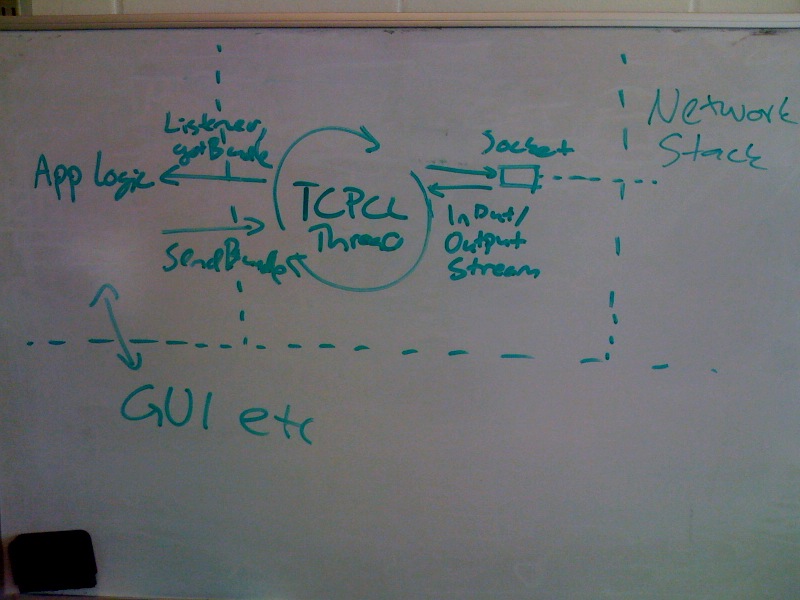 Listener/
gotBundle
App Logic
SendBundle
TCPCL
Thread
Socket
Input/
Output
Stream
Network
Stack
GUI etc